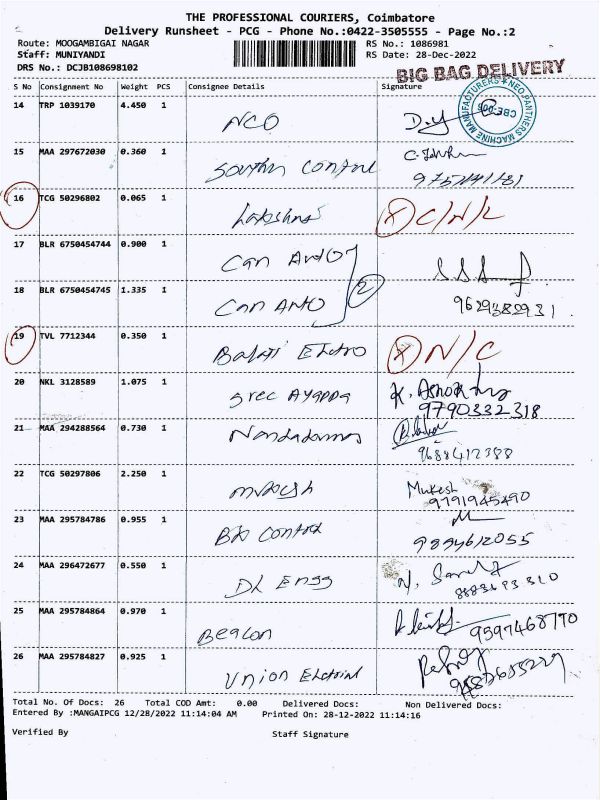 THE PROFESSIONAL COURIERS, Coimbatore
Delivery Runsheet - PCG - Phone No.:0422-3505555 - Page No.:2
Route: MOOGAMBIGAI NAGAR RS No.: 1086981
Staff: MUNIYANDI RS Date: 28-Dec-2022
DRS No.: DCJB108698102
BIG BAG DELIVERY
S No Consignment No Weight PCS Consignee Details Signature
NEO PANTHERS MACHINE MANUFACTURERS
14 TRP 1039170 4.450 1 NCO
15 MAA 297672030 0.360 1 Southn Control
16 TCG 50296802 0.065 1 Lakshmi X C/N/L
17 BLR 6750454744 0.900 1 Can Auto
18 BLR 6750454745 1.335 1 Can Auto 2
9629382931
19 TVL 7712344 0.350 1 Balaji Electro X N/C
20 NKL 3128589 1.075 1 Sree Ayappa K. Ashok
9790332318
21 MAA 294288564 0.730 1
9688412388
22 TCG 50297806 2.250 1 Mukesh
9791945490
23 MAA 295784786 0.955 1 Control
9894612055
24 MAA 296472677 0.550 1 DL Engg
25 MAA 295784864 0.970 1 Beacon
9597468770
26 MAA 295784827 0.925 1 Union
Total No. Of Docs: 26 Total COD Amt: 0.00 Delivered Docs: Non Delivered Docs:
Entered By :MANGAIPCG 12/28/2022 11:14:04 AM Printed On: 28-12-2022 11:14:16
Verified By Staff Signature